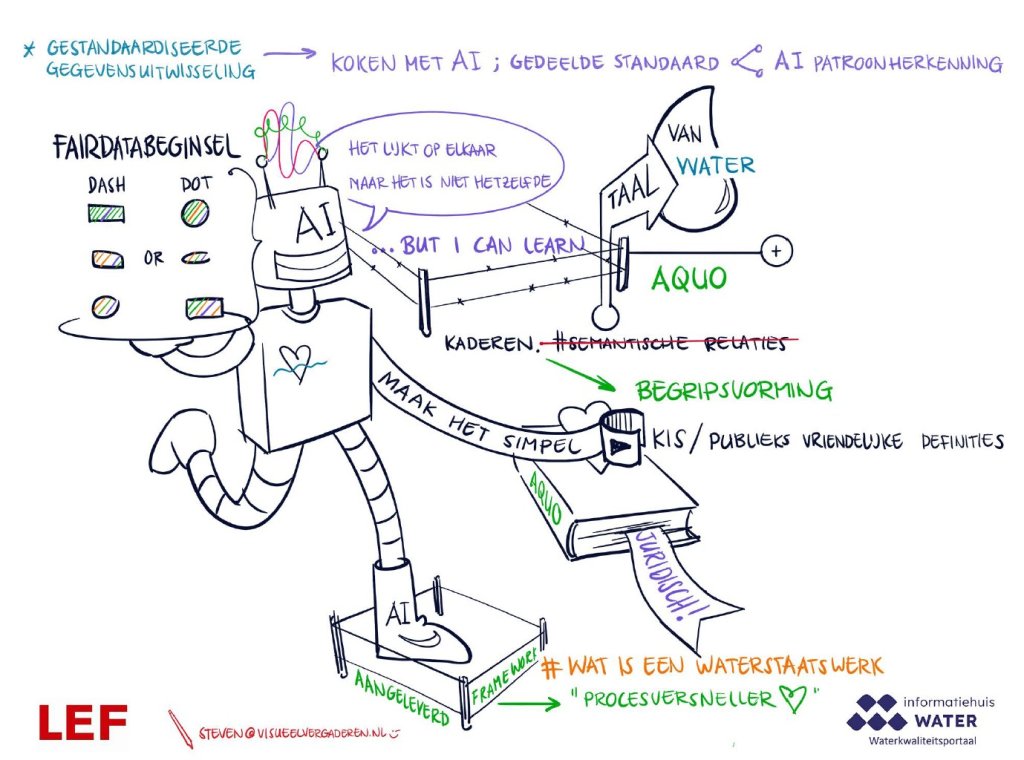 * GESTANDAARDISEERDE
GEGEVENSUITWISSELING
KOKEN MET AI ; GEDEELDE STANDAARD
AI PATROONHERKENNING
FAIRDATABEGINSEL
DASH
DOT
OR
AI
HET LIJKT OP ELKAAR
MAAR HET IS NIET HETZELFDE
... BUT I CAN LEARN
TAAL
VAN
WATER
+
AQUO
KADEREN. #SEMANTISCHE RELATIES
BEGRIPSVORMING
MAAK HET SIMPEL
KIS/PUBLIEKS VRIENDELIJKE DEFINITIES
AQUO
JURIDISCH!
AI
AANGELEVERD
FRAMEWORK
# WAT IS EEN WATERSTAATSWERK
"PROCESVERSNELLER♡"
LEF
STEVEN@VISUEELVERGADEREN.NL
informatiehuis
WATER
Waterkwaliteitsportaal